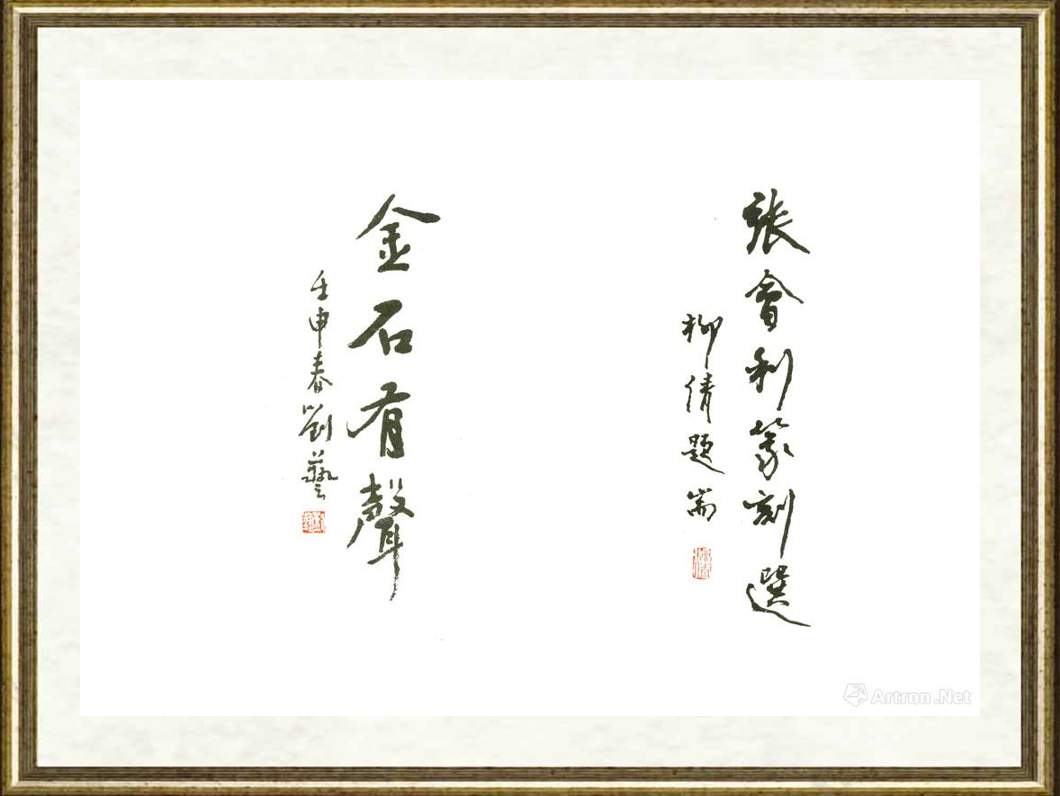 張會利篆刻選
柳倩題耑
金石有聲
壬申春劉藝
Artron.Net